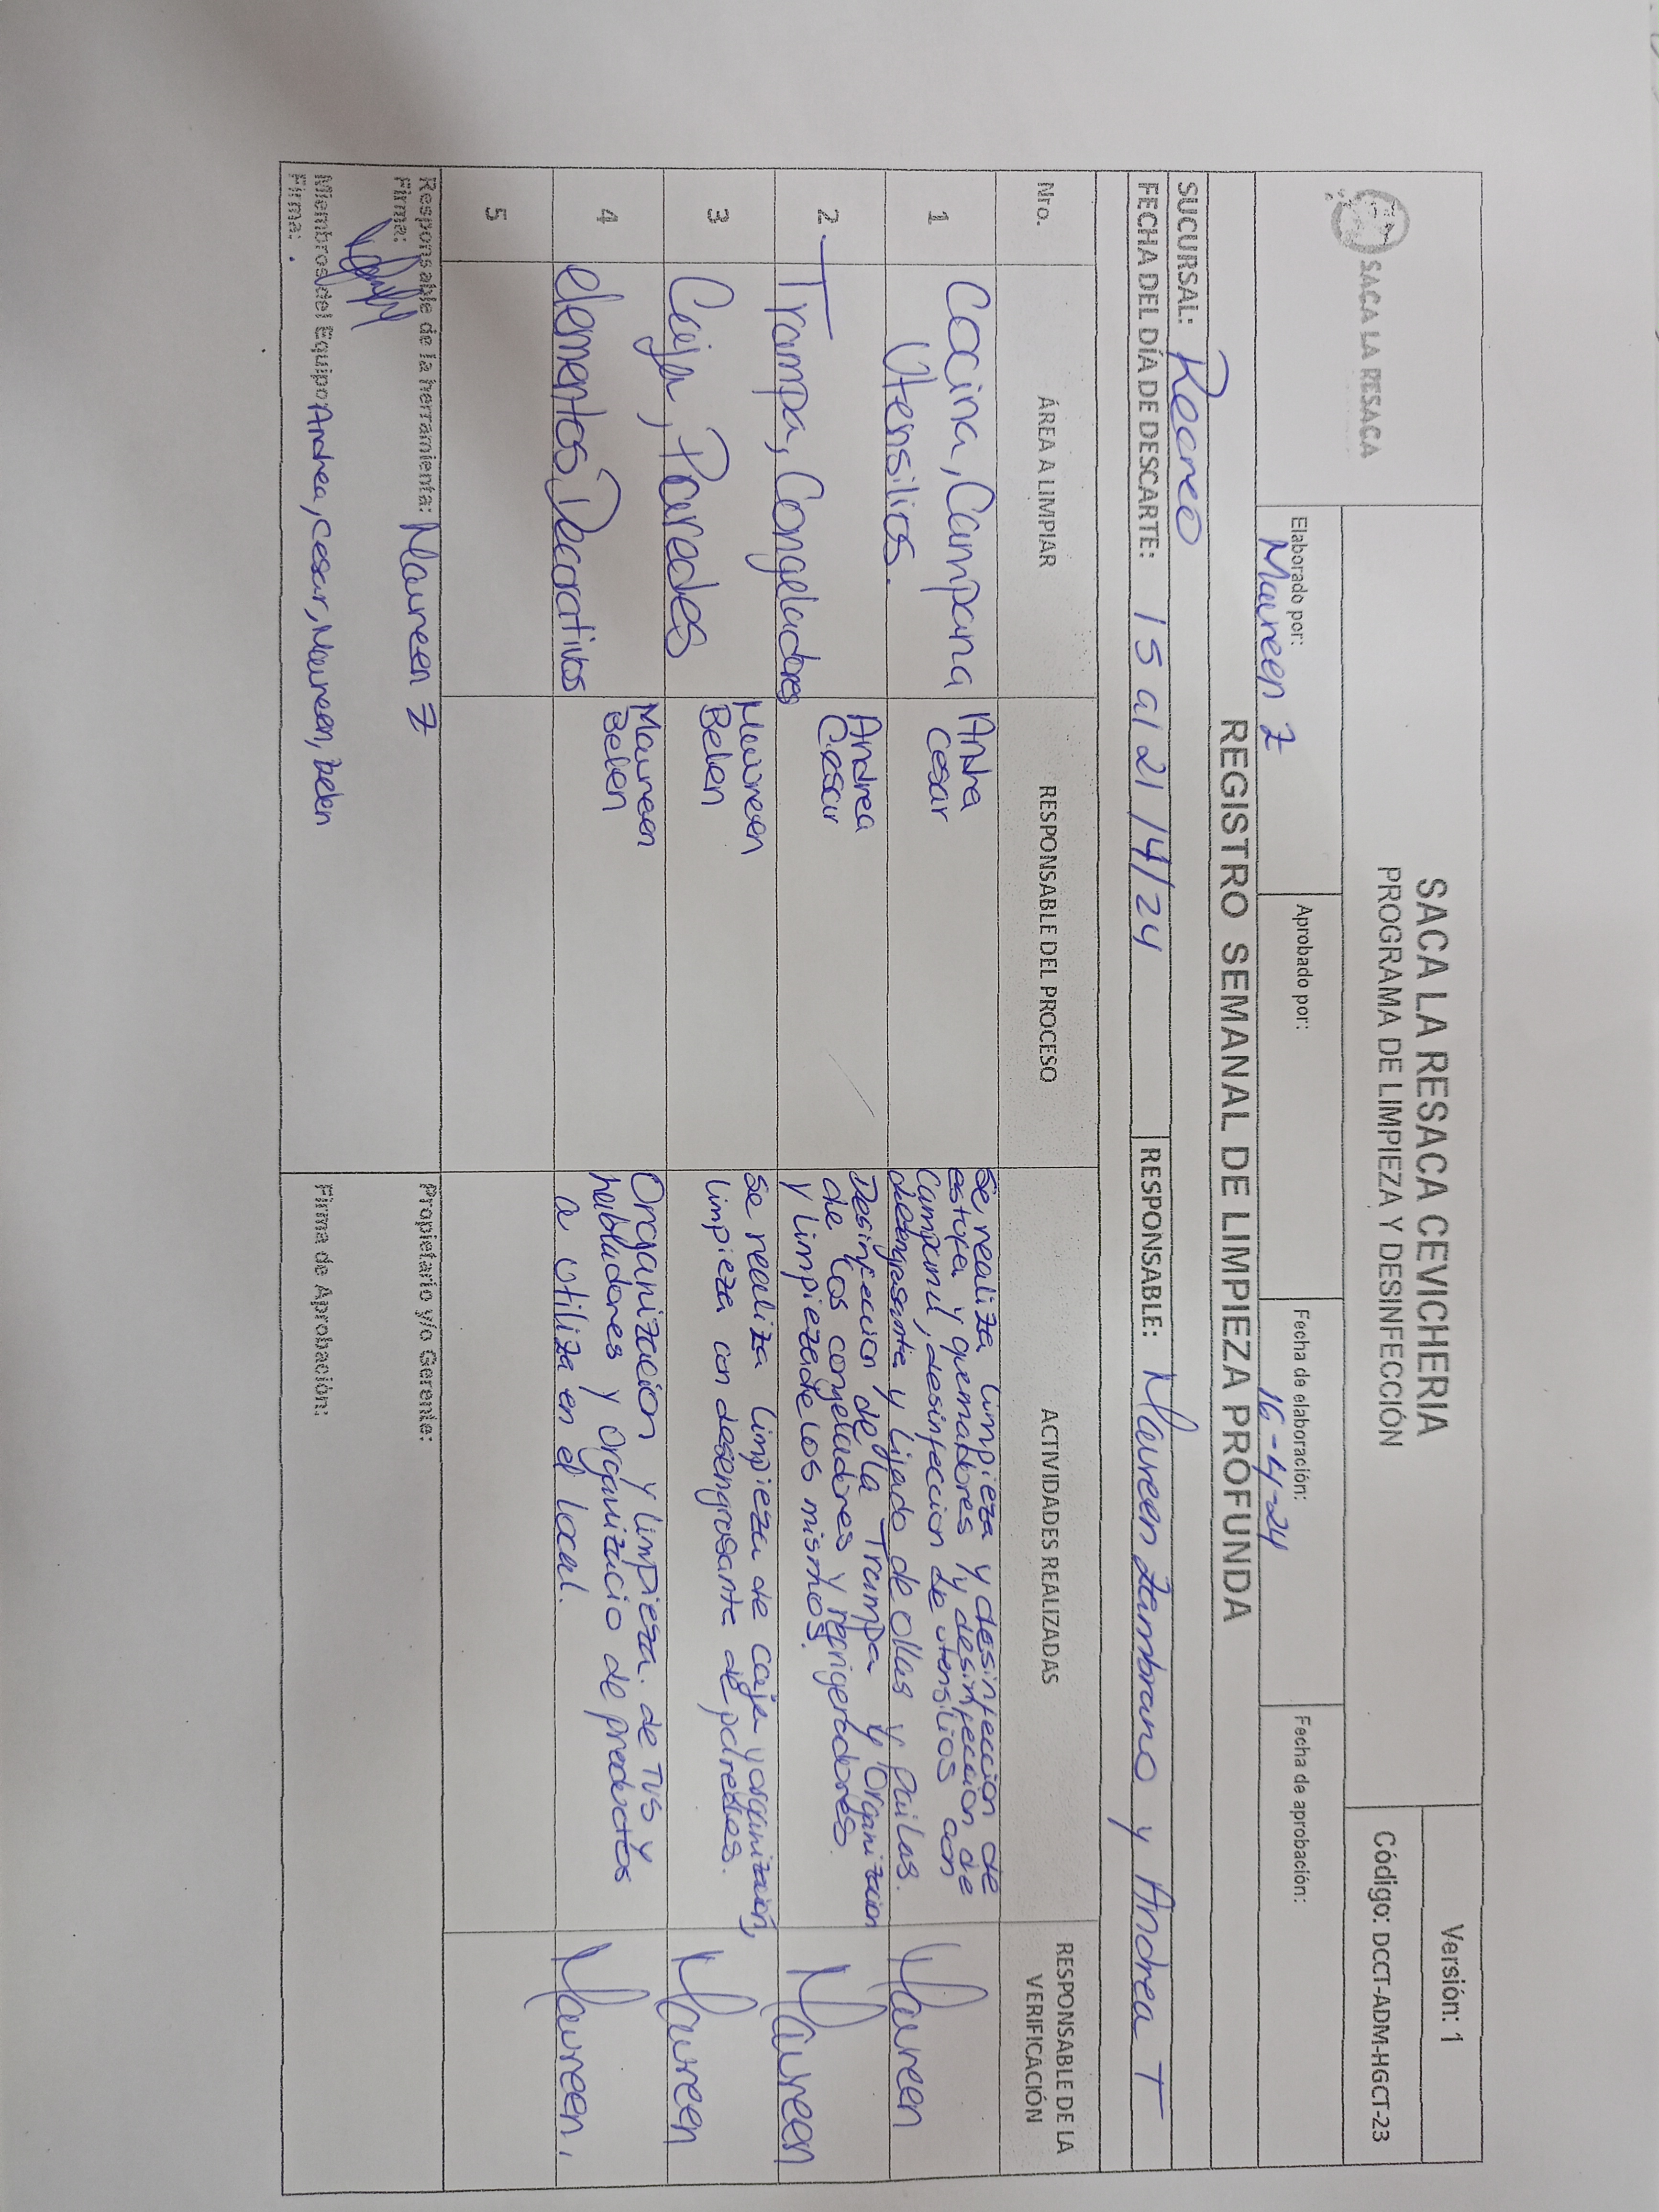 SACA LA RESACA
SACA LA RESACA CEVICHERIA
PROGRAMA DE LIMPIEZA Y DESINFECCIÓN
Versión: 1
Código: DCCT-ADM-HGCT-23
Elaborado por:
Maureen Z
Aprobado por:
Fecha de elaboración:
16-4-24
Fecha de aprobación:
REGISTRO SEMANAL DE LIMPIEZA PROFUNDA
SUCURSAL: Recreo
FECHA DEL DÍA DE DESCARTE: 15 al 21 /4/24
RESPONSABLE: Maureen Zambrano y Andrea T
Nro.
ÁREA A LIMPIAR
RESPONSABLE DEL PROCESO
ACTIVIDADES REALIZADAS
RESPONSABLE DE LA
VERIFICACIÓN
1
Cocina, Campana
Utensilios.
Andrea
Cesar
Se realiza limpieza y desinfeccion de
estufa y quemadores y desinfeccion de
Campana, desinfeccion de utensilios con
desengrasante y lijado de ollas y pailas.
Maureen
2
Trampa, Congeladores
Andrea
Cesar
Desinfeccion de la Trampa y Organizacion
de los congeladores y refrigeradores
y limpieza de los mismos.
Maureen
3
Caja, Paredes
Maureen
Belen
Se realiza limpieza de caja y organizacion,
limpieza con desengrasante de paredes.
Maureen
4
elementos Decorativos
Maureen
Belen
Organizacion y limpieza. de TVS y
habladores y Organizacio de productos
a utiliza en el local.
Maureen.
5
Responsable de la herramienta: Maureen Z
Firma:
Miembros del Equipo: Andrea, Cesar, Maureen, belen
Firma:
Propietario y/o Gerente:
Firma de Aprobación: